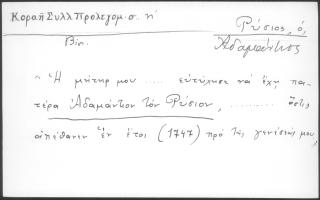 Κοραῆ Συλλ. Προλεγομ. σ. η'
Ρύσιος, ὁ,
Βίο.
Ἀδαμάντιος
"Ἡ μήτηρ μου ..... εὐτύχησε νὰ ἔχῃ πα-
τέρα Ἀδαμάντιον τὸν Ῥύσιον, .......... ὅστις
ἀπέθανεν ἓν ἔτος (1747) πρὸ τῆς γενέσεώς μου,